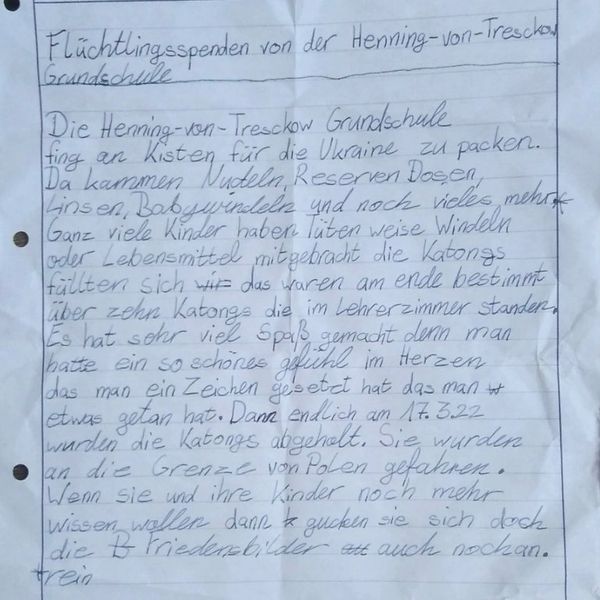 Flüchtlingsspenden von der Henning-von-Tresckow
Grundschule
Die Henning-von-Tresckow Grundschule
fing an Kisten für die Ukraine zu packen.
Da kammen Nudeln, Reserven Dosen,
Linsen, Babywindeln und noch vieles mehr
Ganz viele Kinder haben Tüten weise Windeln
oder Lebensmittel mitgebracht die Katongs
füllten sich wir das waren am ende bestimmt
über zehn Katongs die im Lehrerzimmer standen.
Es hat sehr viel Spaß gemacht denn man
hatte ein so schönes gefühl im Herzen
das man ein Zeichen gesetzt hat das man
etwas getan hat. Dann endlich am 17.3.22
wurden die Katongs abgeholt. Sie wurden
an die Grenze von Polen gefahren.
Wenn sie und ihre Kinder noch mehr
wissen wollen dann gucken sie sich doch
die Friedensbilder auch noch an.
rein